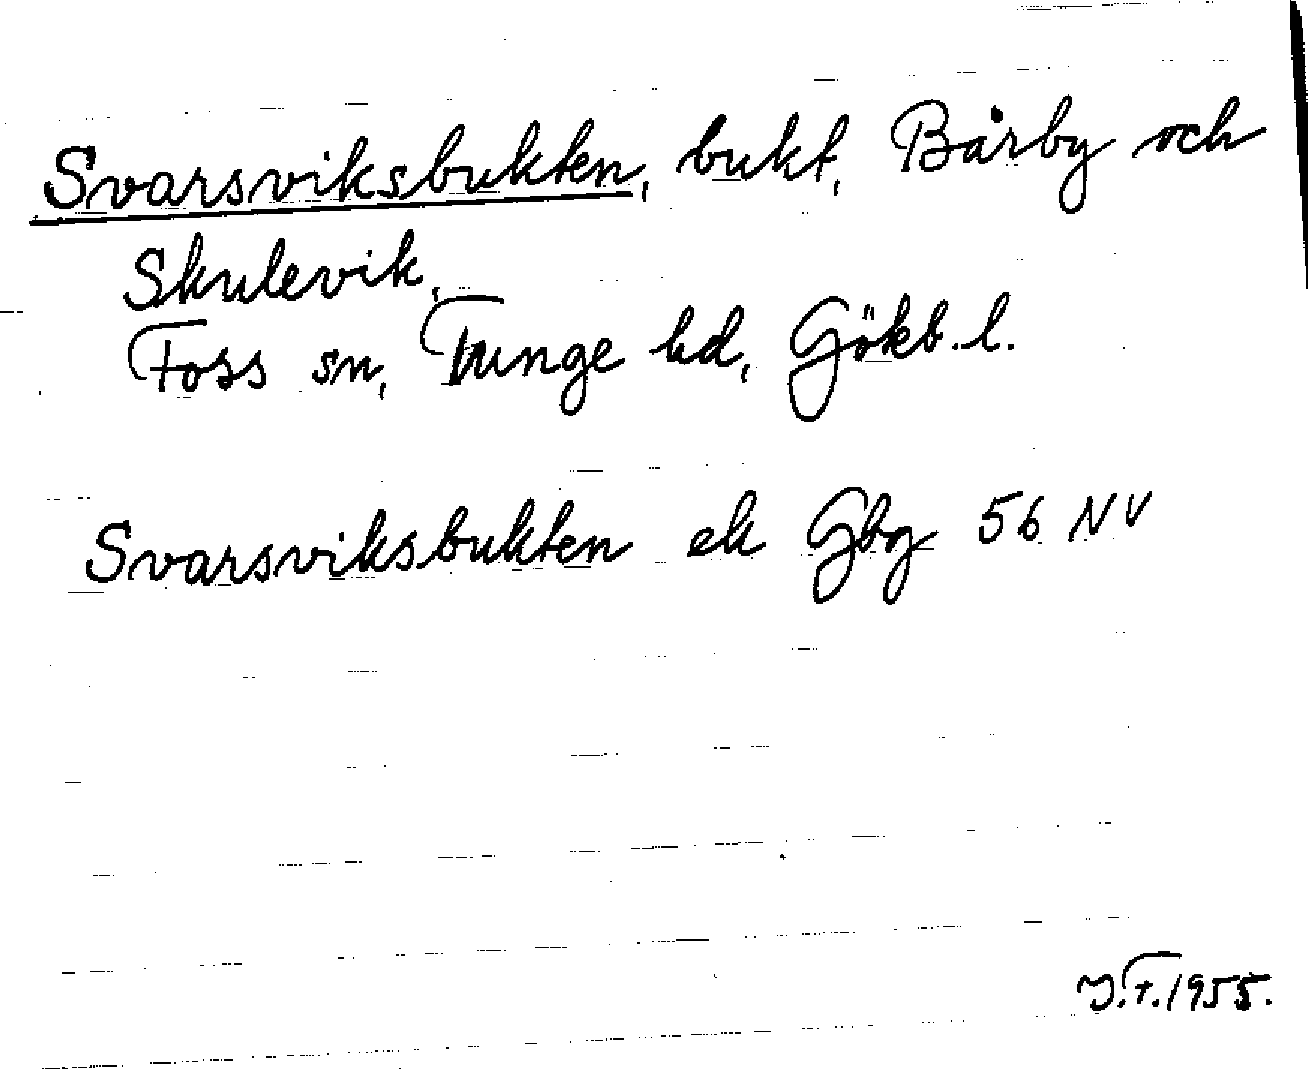 Svarsviksbukten, bukt, Bärby och
Skulevik,
Foss sn, Tunge hd, Gökb. l.
Svarsviksbukten ek Gbg 56 NV
J.F. 1955.